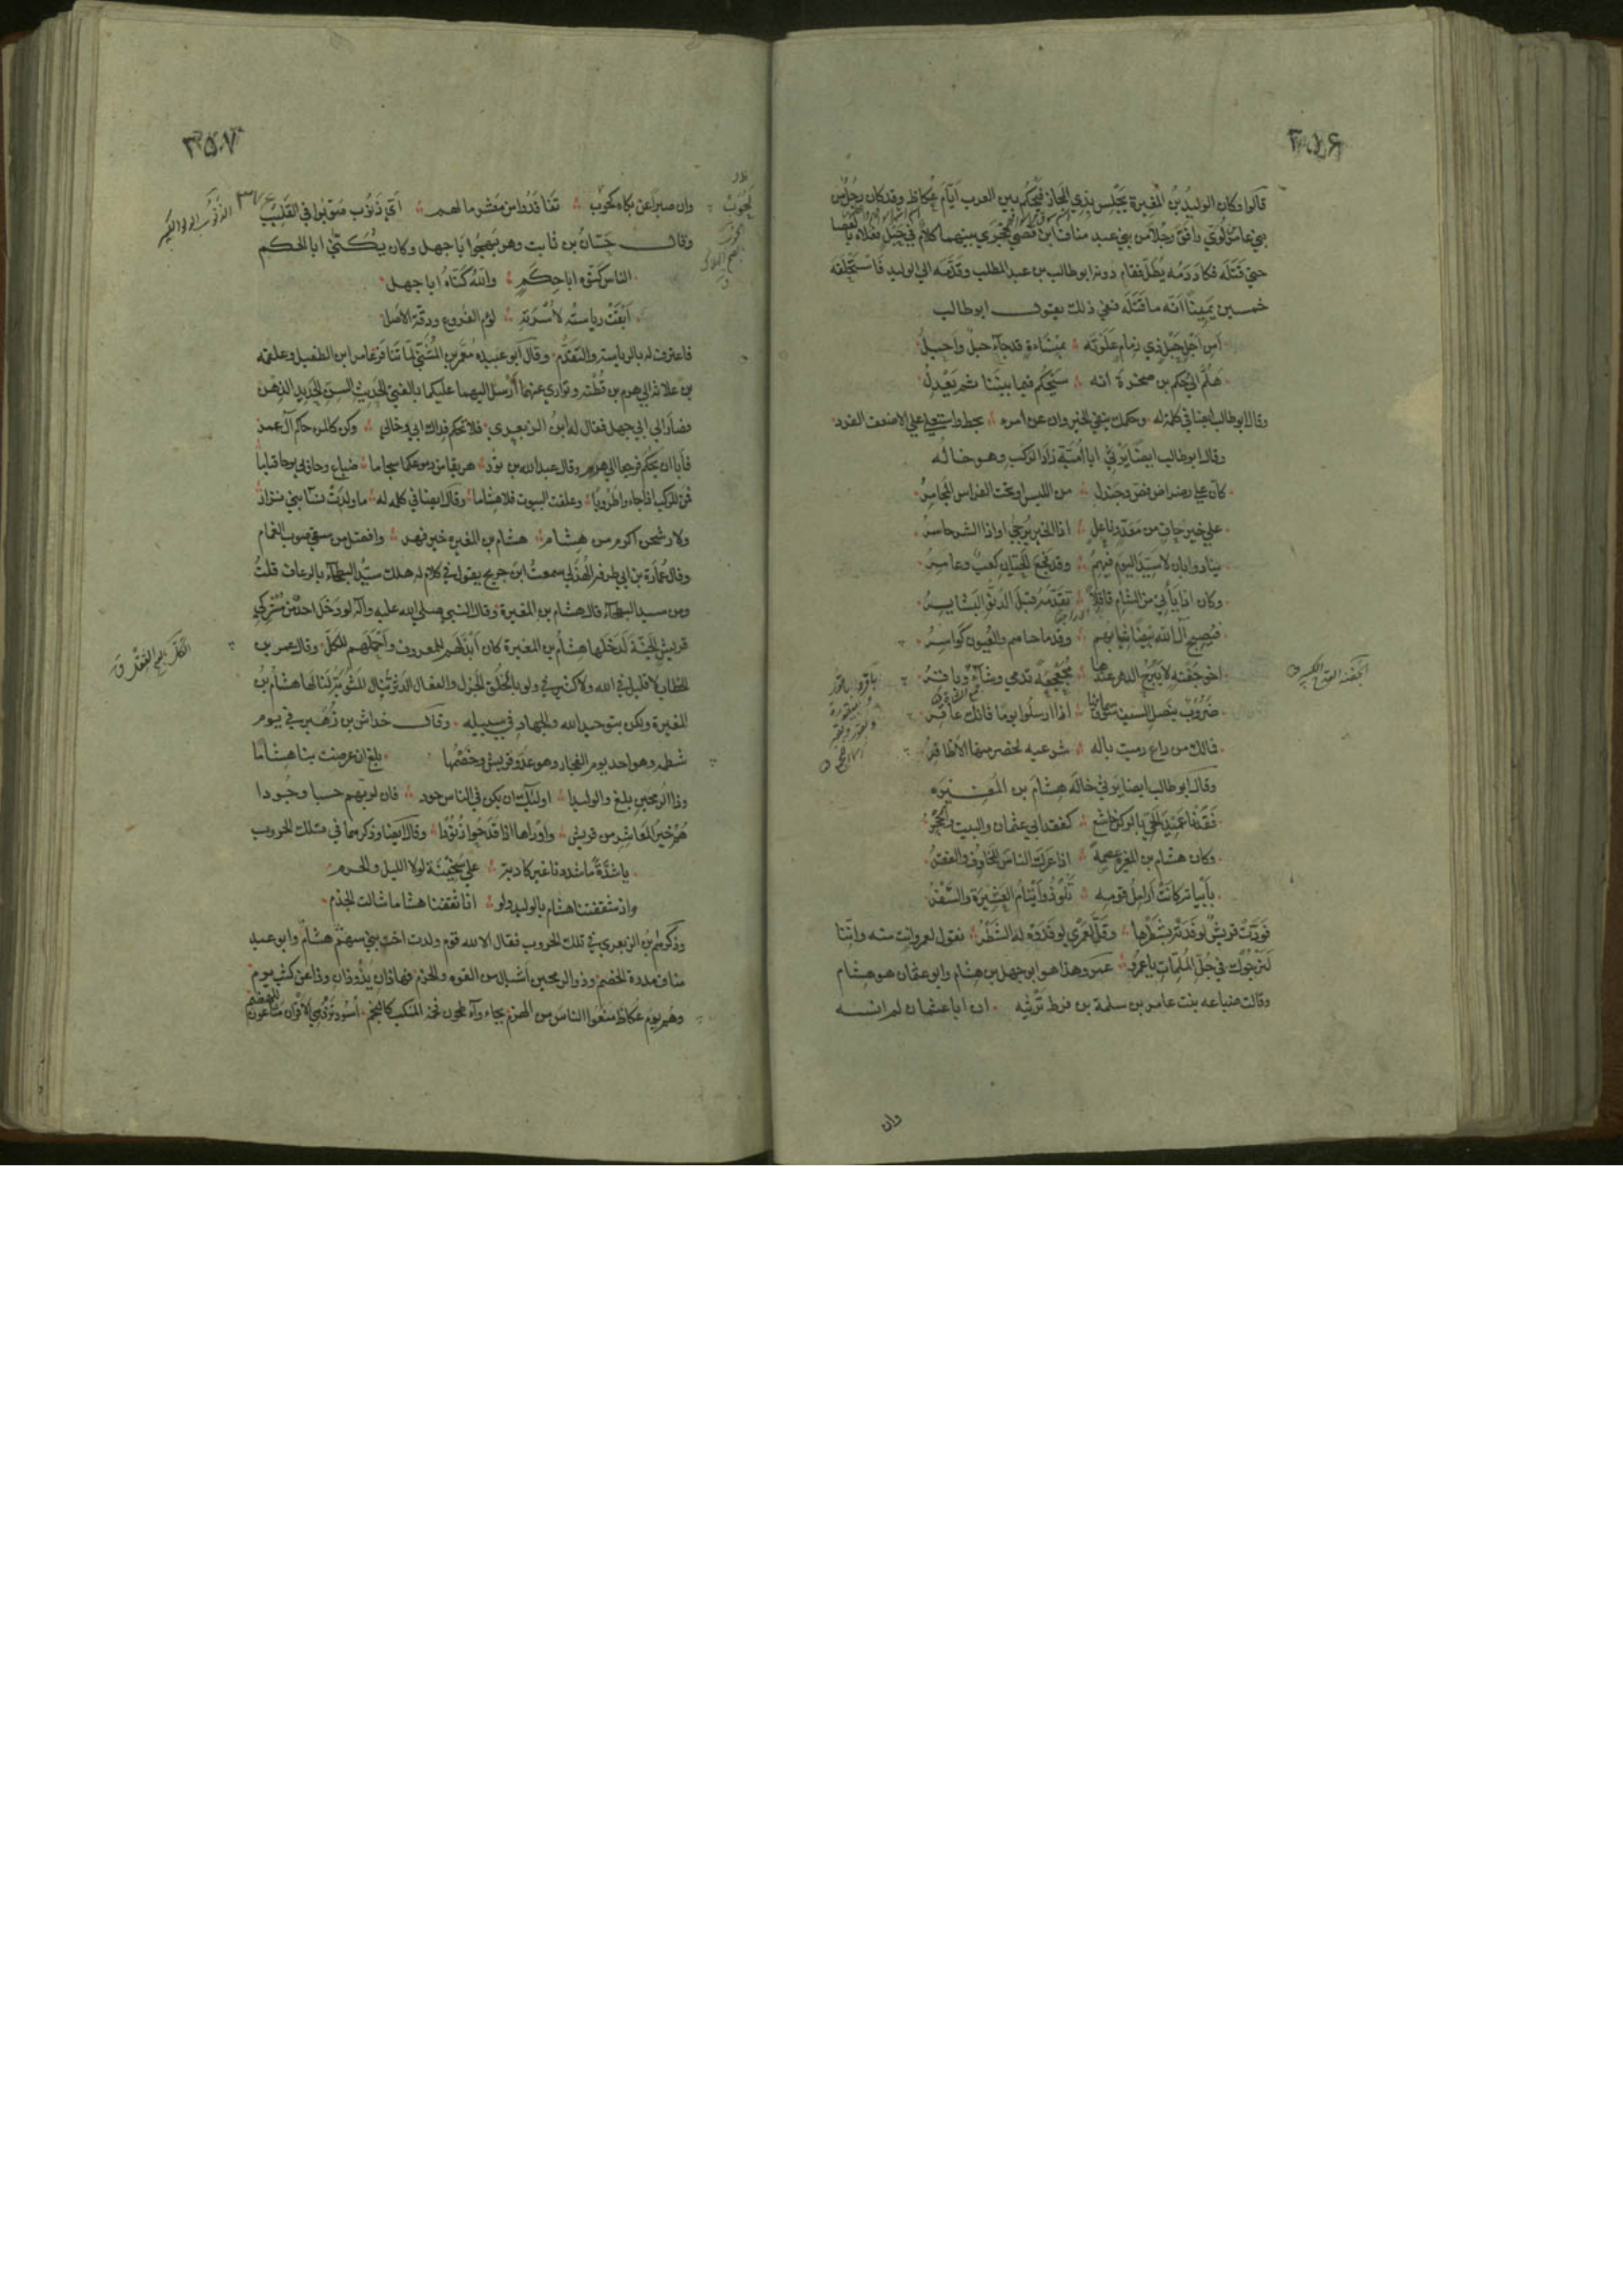 ٣٥٦
قالوا وكان الوليد بن المغيرة يجلس بذي المجاز فيحكم بين العرب أيام عكاظ وقد كان رجل من
بني عامر بن لؤي رافق رجلا من بني عبد مناف ابن قصي فجرى بينهما كلام في حبل فعلاه بالعصا
حتى قتله فكاد دمه يطل فقام دونه ابو طالب بن عبد المطلب وقدمه الى الوليد فاستحلفه
خمسين يمينا انه ما قتله ففي ذلك يقول ابو طالب
أمن اجل حبل ذي رمام علوته بمنسأة قد جاء حبل وأحبل
هلم الى حكم بن صخرة انه سيحكم فيما بيننا ثم يعدل
وقال ابو طالب ايضا في كلمة له وحكمك يبقي الخير وان عز امره تخمط واستعلى على الاضعف الفرد
وقال ابو طالب ايضا يرثي ابا أمية زاد الركب وهو خاله
كأن على رضراض قض وجندل من اليبس او تحت الفراش المجامر
على خير حاف من معد وناعل اذا الخير يرجى او اذا الشر حاسر
تنادوا بان لا سيد اليوم فيهم وقد فجع الحيان كعب وعامر
وكان اذا يأتي من الشام قافلا تقدمه قبل الدنو البشاير
فيصبح آل الله بيضا ثيابهم وقدما حباهم والعيون كواسر
اخو جفنة لا تبرح الدهر عندنا مجعجعة تدمي وشاء وباقر
ضروب بنصل السيف سوق سمانها اذا ارسلوا يوما فانك عاقر
فيالك من راع رميت بآلة شراعية تخضر منها الاظافر
وقال ابو طالب ايضا يرثي خاله هشام بن المغيرة
فقدنا عميد الحي بالركن خاشع كفقد ابي عثمان والبيت والحجر
وكان هشام بن المغيرة عصمة اذا عرك الناس المخاوف والفقر
بأبياته كانت أرامل قومه تلوذ وأيتام العشيرة والسفر
فودت قريش لو فدته بشطرها وقل لعمري لو فدوه له الشطر نقول لعمرو انت منه واننا
لنرجوك في جل الملمات يا عمرو عمرو هذا هو ابو جهل بن هشام وابو عثمان هو هشام
وقالت ضباعه بنت عامر بن سلمة بن قرط ترثيه ان ابا عثمان لم انسه
الجفنة
وان
٣٥٧
وان صبرا عن بكاه لحوب تفاقدوا من معشر ما لهم أي ذنوب صوبوا في القليب
وقال حسان بن ثابت وهو يهجو ابا جهل وكان يكتنى ابا الحكم
الناس كنوه ابا حكم والله كناه ابا جهل
أبقت رياسته لأسرته لؤم الفروع ودقة الاصل
فاعترف له بالرياسة والتقدم وقال ابو عبيده معمر بن المثنى لما تنافر عامر ابن الطفيل وعلقمه
بن علاثة الى هرم بن قطبة وتوارى عنهما أرسل اليهما عليكما بالفتى الحديث السن الحديد الذهن
فصارا الى ابي جهل فقال له ابن الزبعرى فلا تحكم فداك ابي وخالي وكن كالمرء حاكم آل عمرو
فأبى ان يحكم فرجعا الى هرم وقال عبد الله بن ثور هريقا من دموعكما سجاما ضباع وحاربي نوحا قياما
فمن للركب اذا جاءوا طروقا وغلقت البيوت فلا هشاما وقال ايضا في كلمة له ما ولدت نسا بني نزار
ولا رشحن اكرم من هشام هشام بن المغيرة خير فهر وافضل من سقي صوب الغمام
وقال عمارة بن ابي طرفة الهذلي سمعت ابن جريج يقول في كلام له هلك سيد البطحاء بالرعاف قلت
ومن سيد البطحاء قال هشام بن المغيرة وقال النبي صلى الله عليه وآله لو دخل احد من مشركي
قريش الجنة لدخلها هشام بن المغيرة كان أبذلهم للمعروف وأحملهم للكل وقال عمر بن
الخطاب لا قليل في الله ولا كثير في ولو بالخلق الجزل والفعال الدثر تنال المثوبة لنالها هشام بن
المغيرة ولكن بتوحيد الله والجهاد في سبيله وقال خداش بن زهير في يوم
شطه وهو احد يوم الفجار وهو عدو قريش وخصمها بلغ ان عرضت بنا هشاما
وذا الرمحين بلغ والوليدا اولئك ان يكن في الناس جود فان لديهم حسبا وجودا
هم خير المعاشر من قريش وأوراها اذا قدحوا زنودا وقال ايضا وذكرهما في تلك الحروب
يا شدة ما شددنا غير كاذبة على سخينة لولا الليل والحرم
واذ ثقفنا هشاما بالوليد ولو انا ثقفنا هشاما شالت الجذم
وذكرهم بن الزبعرى في تلك الحروب فقال الا لله قوم ولدت اخت بني سهم هشام وابو عبد
مناف مدره الخصم وذو الرمحين أشبال من القوة والحزم فهاذان يذودان وذا عن كثب يرمي
وهم يوم عكاظ منعوا الناس من الهزم بجاء وآء طحون فخمة المنكب كالنجم أسود تزدهي الاقران مناعون للهضم
لحوب
الذنوب الدلو الكبير